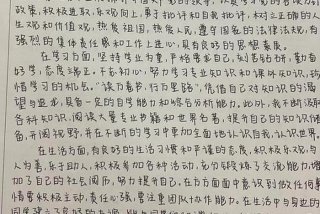 政策,积极进取,乐观向上,勇于批评和自我批评,树立正确的人
生观和价值观,热爱祖国,热爱人民,遵守国家的法律法规,有
强烈的集体责任感和工作上进心,具有良好的思想素质。
在学习方面,坚持学业为重,严格要求自己,刻苦钻研,勤奋
好学,态度端正。不忘初心,努力学习专业知识和课外知识,珍
惜学习的机会。"读万卷书,行万里路",凭借自己对知识的渴
望与追求,具备一定的自学能力和综合分析能力。此外,我不断汲取
各种知识,阅读大量专业书籍和世界名著,提升自己的知识储
备,开阔视野,并在不断的学习中更加全面地认识自我,认识世界。
在生活方面,有良好的生活习惯和正派的态度,积极乐观,与
人为善,乐于助人,积极参加各种活动,充分锻炼了交流能力,增
加了自己的社会阅历,努力提升自己,在方方面面中意识到做任何事
情要积极主动,责任心强,要注重团队协作能力。在生活中与身边的